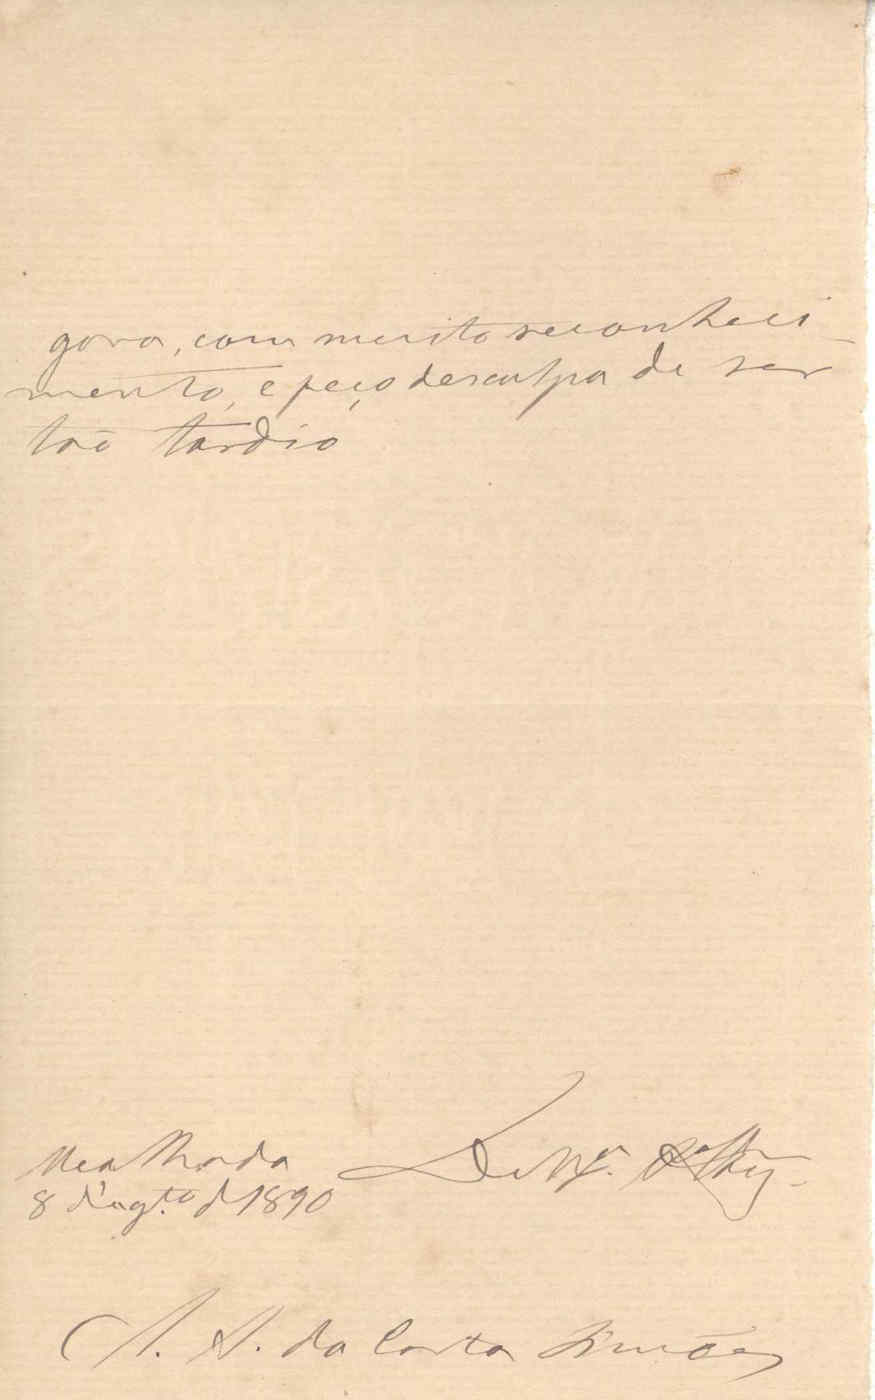 gora, com muito reconheci-
mento, e peço desculpa de ser
tão tardio
Mealhada
8 d'agto. d 1890
De V. Exa.
A. A. da Costa Simões